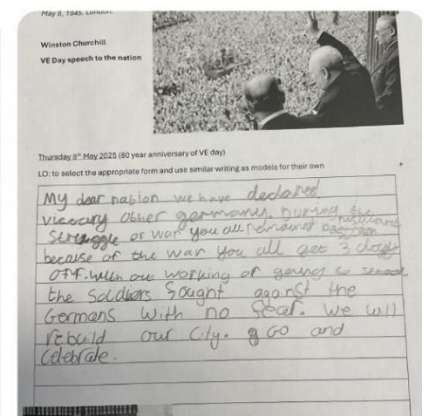 May 8, 1945. London.
Winston Churchill
VE Day speech to the nation
Thursday 8th May 2025 (80 year anniversary of VE day)
LO: to select the appropriate form and use similar writing as models for their own
My dear nation we have declared
viccary other germany. During the
struggle of war you all remained
because of the war you all get 3 days
OFF. with out working or going to school
the Soldiers Fought aganst the
Germans with no fear. We will
rebuild our City. Go and
Celebrate.